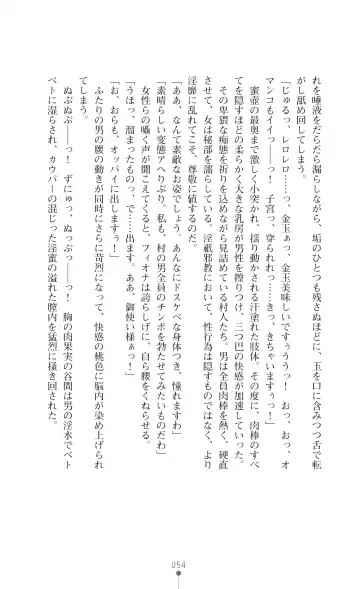 れを唾液をだらだら漏らしながら、垢のひとつも残さぬほどに、玉を口に含みつつ舌で転
がし舐め回してしまう。
「じゅるっ、レロレロ……っ、金玉ぁっ、金玉美味しいですぅううっ！　おっ、おっ、オ
マンコもイイっ……！　子宮っ、穿られれっ……きっ、きちゃいますぅっ！」
　蜜壺の最奥まで激しく小突かれ、揺り動かされる汗塗れた肢体。その度に、肉棒のすべ
てを隠すほどの柔らかく大きな乳房が男性を擦りつけ、三つ巴の快感が加速していった。
　その卑猥な痴態を祈りを込めながら見詰めている村人たち。男は全員肉棒を熱く、硬直
させて、女は秘部を濡らしている。淫紙邪教において、性行為は隠すものではなく、より
淫靡に乱れてこそ、尊敬に値するのだ。
「ああ、なんて素敵なお姿でしょう。あんなにドスケベな身体つき、憧れますわ」
「素晴らしい変態アヘりぶり。私も、村の男全員のチンポを勃たせてみたいものだわ」
　女性らの囁く声が聞こえてくると、フィオナは誇らしげに、自ら腰をくねらせる。
「うほっ、溜まったもの、っで……出ます。ああ、御使い様ぁっ！」
「お、おらも、オッパイに出しますぅ！」
　ふたりの男の腰の動きが同時にさらに苛烈になって、快感の桃色に脳内が染め上げられ
てしまう。
　ぬぶぬぷ――っ！　ずにゅっ、ぬっぷっ――っ！　胸の肉果実の谷間は男の淫水でベト
ベトに湿らされ、カウパーの混じった淫蜜の溢れた膣内を猛烈に掻き回された。
054